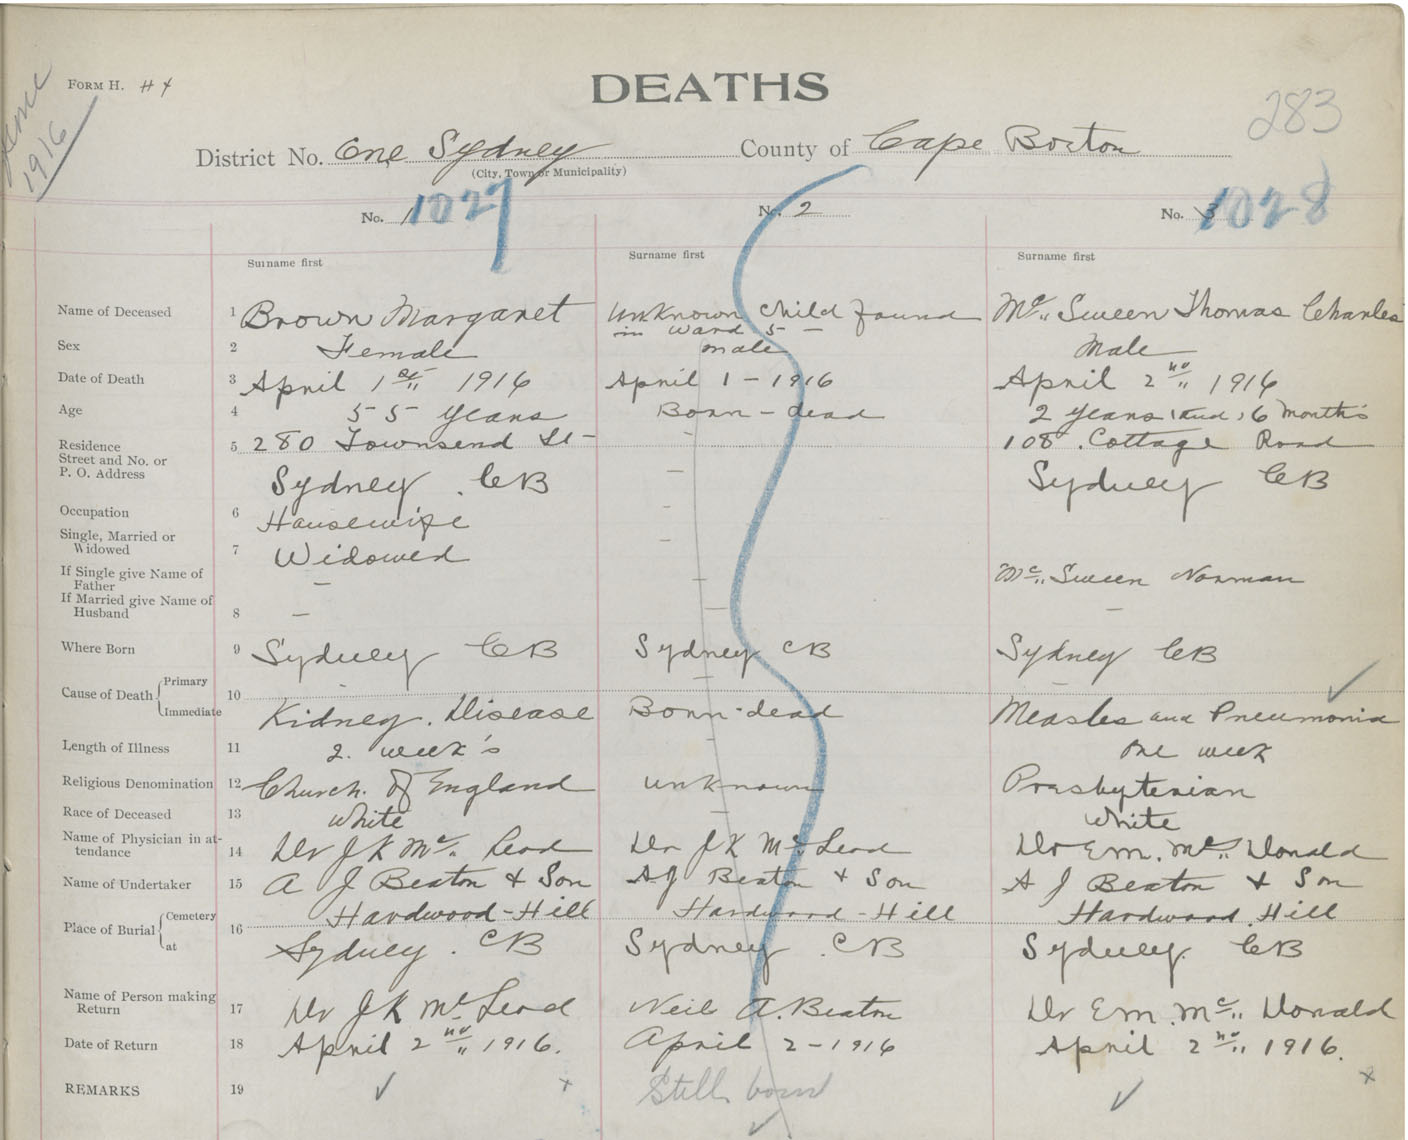 June
1916
FORM H. H4
DEATHS
283
District No. One Sydney County of Cape Breton
(City, Town or Municipality)
No. 1 1027
No. 2
No. 3 1028
Surname first
Surname first
Surname first
Name of Deceased 1 Brown Margaret Unknown Child found Mc Sween Thomas Charles
in ward 5 –
Sex 2 Female male Male
Date of Death 3 April 1st 1916 April 1 – 1916 April 2nd 1916
Age 4 55 years Born – dead 2 years and 6 months
Residence 5 280 Townsend St – – 108 Cottage Road
Street and No. or
P. O. Address Sydney . CB – Sydney CB
Occupation 6 Housewife –
Single, Married or
Widowed 7 Widowed –
If Single give Name of
Father – – Mc Sween Norman
If Married give Name of
Husband 8 – – –
Where Born 9 Sydney CB Sydney CB Sydney CB
Cause of Death Primary 10 – –
Immediate Kidney . Disease Born-dead Measles and Pneumonia
Length of Illness 11 2. week's – one week
Religious Denomination 12 Church. Of England unknown Presbyterian
Race of Deceased 13 White – White
Name of Physician in at-
tendance 14 Dr J K Mc Leod Dr J K Mc Leod Dr E M. Mc Donald
Name of Undertaker 15 A J Beaton & Son A J Beaton & Son A J Beaton & Son
Place of Burial Cemetery 16 Hardwood-Hill Hardwood-Hill Hardwood Hill
at Sydney . CB Sydney . CB Sydney. CB
Name of Person making
Return 17 Dr J K Mc Leod Neil A. Beaton Dr E M. Mc Donald
Date of Return 18 April 2nd 1916. April 2 – 1916 April 2nd 1916.
REMARKS 19 ✓ x Still born ✓ ✓ x